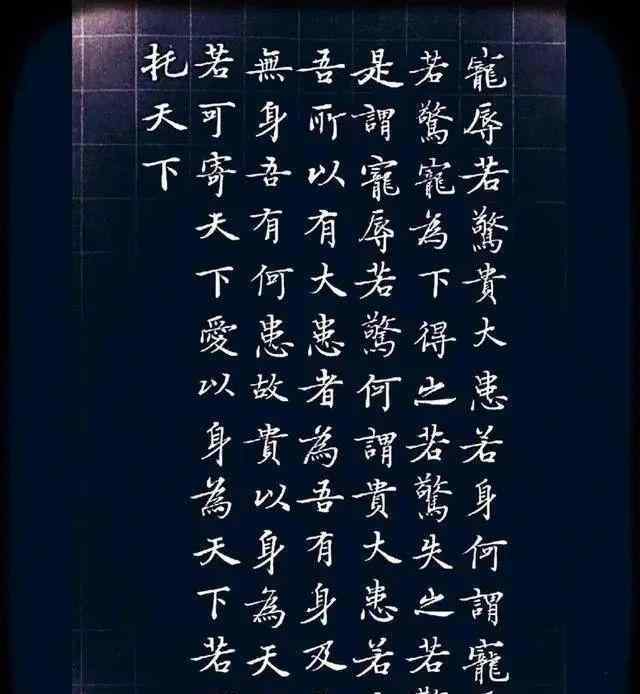 寵辱若驚貴大患若身何謂寵
若驚寵為下得之若驚失之若
是謂寵辱若驚何謂貴大患若
吾所以有大患者為吾有身及
無身吾有何患故貴以身為天
若可寄天下愛以身為天下若
托天下